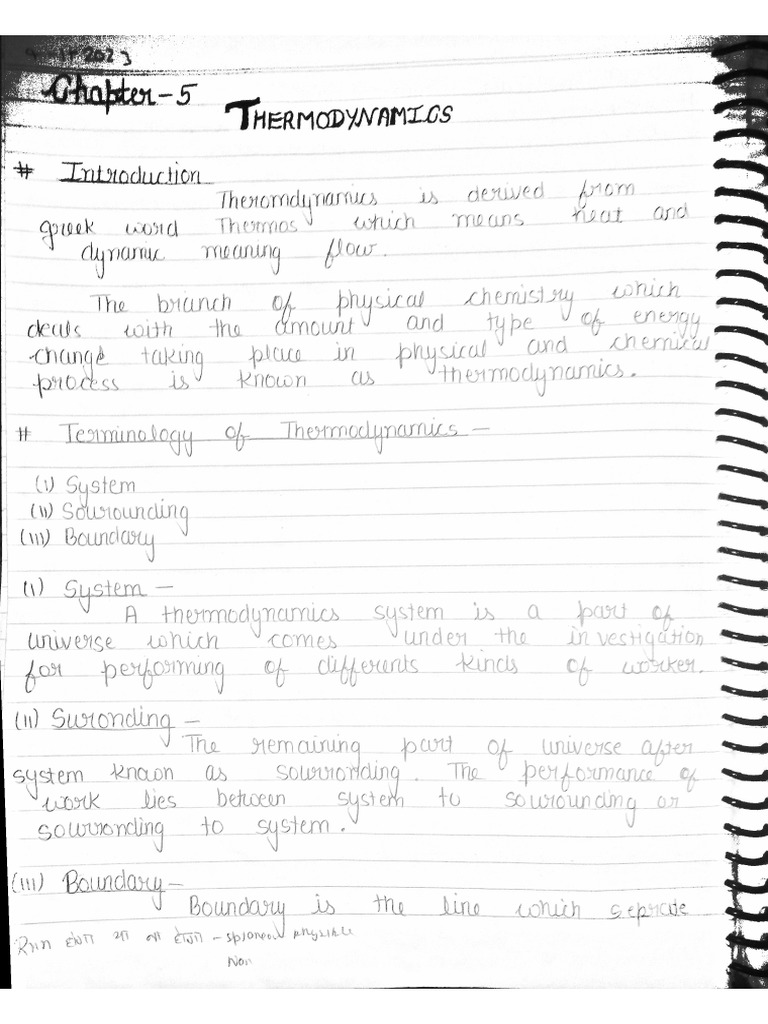 2023
Chapter-5
THERMODYNAMICS
# Introduction
Theromdynamics is derived from
greek word Thermos which means heat and
dynamic meaning flow.
The branch of physical chemistry which
deals with the amount and type of energy
change taking place in physical and chemical
process is known as thermodynamics.
# Terminology of Thermodynamics -
(i) System
(ii) Sourounding
(iii) Boundary
(i) System -
A thermodynamics system is a part of
universe which comes under the investigation
for performing of differents kinds of worker.
(ii) Suronding -
The remaining part of universe after
system known as sourronding. The performance of
work lies between system to sourounding or
sourronding to system.
(iii) Boundary -
Boundary is the line which seprate
होगा या ना होगा -
Non